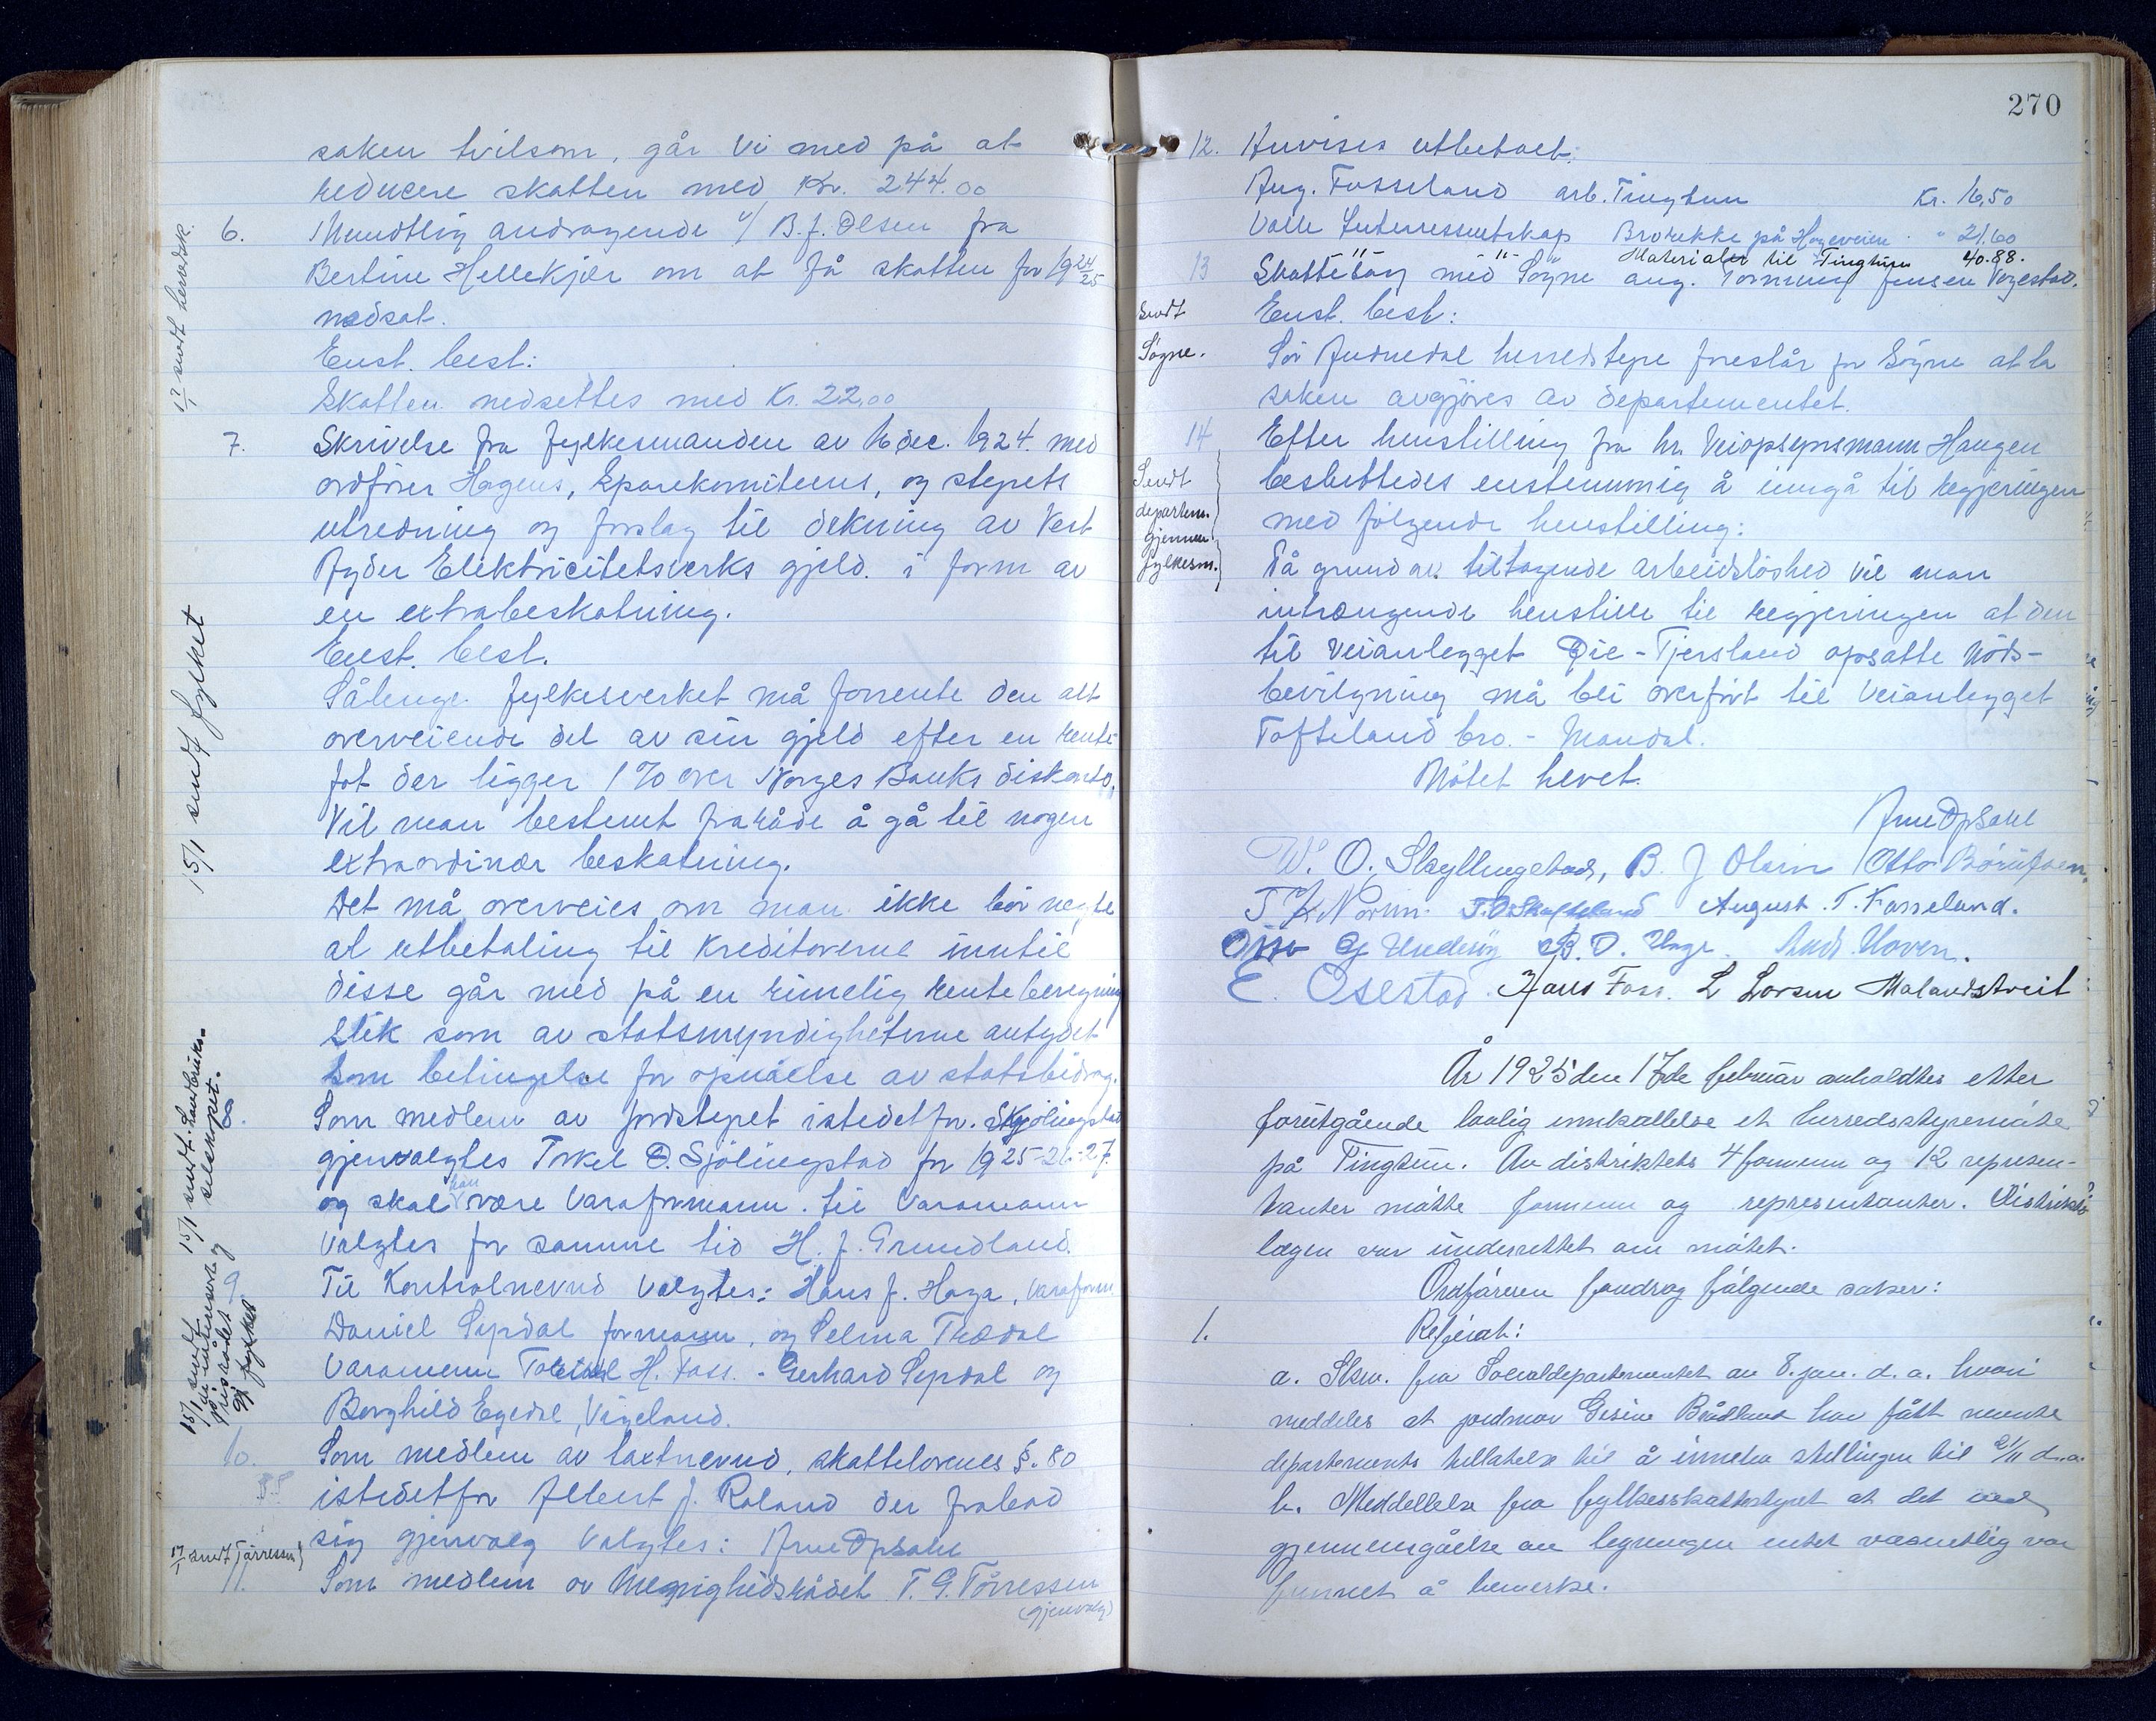 saken tvilsom, går vi med på at
reducere skatten med Kr. 244.00
17/1 sendt herredsk.
6. Mundtlig andragende v/ B. J. Olsen fra
Bertine Hellekjær om at få skatten for 1924/25
nedsat.
Enst. best:
Skatten nedsettes med Kr. 22,00
7. Skrivelse fra fylkesmanden av 16 dec. 1924. med
ordfører Hagens, Sparekomiteens, og styrets
utredning og forslag til dekning av Vest
Agder Elektricitetsverks gjeld. i form av
en extrabeskatning.
15/1 sendt fylket
Enst. best.
Sålenge fylkesverket må forrente den alt
overveiende del av sin gjeld efter en rente-
fot der ligger 1 % over Norges Banks diskonto,
vil man bestemt fraråde å gå til nogen
extraordinær beskatning.
Det må overveies om man ikke bør negte
al utbetaling til kreditorerne inntil
disse går med på en rimelig renteberegning
slik som av statsmyndigheterne antydet
som betingelse for opnåelse av statsbidrag.
15/1 sendt. landbruks-
selskapet.
8. Som medlem av jordstyret istedetfor. Skjølingstad
gjenvalgtes Torkel O. Sjølingstad for 1925-26-27.
og skal han være Varaformann. til Varamann
valgtes for samme tid H. J. Grundland.
15/1 sendt
og
g. fylket
9. Til Kontrolnevnd valgtes: Hans J. Haga, varaform
Daniel Syrdal formann, og Selma Trædal
Varamenn H. Foss. - Gerhard Syrdal og
Borghild Egedal, Vigeland.
10. Som medlem av taxtnevnd, skattelovenes §. 80
istedetfor Albert J. Roland der frabad
sig gjenvalg valgtes: Arne Opsahl
17/1 sendt Tørressen
11. Som medlem av Menighedsrådet T. G. Tørressen
(gjenvalg)
270
12. Anvises utbetalt:
Aug. Fosseland arb. Tingtun Kr. 16,50
Valle Interessentskap Brorekke på Hageveien " 21.60
" " Materialer til Tingtun 40.88.
13 Skattelag med Søgne ang. Tommy Jensen Vogestad.
Sendt
Søgne.
Enst. best:
Sør Audnedal herredstyre foreslår for Søgne at la
saken avgjøres av departementet.
14 Efter henstilling fra hr. Veiopsynsmann Haugen
besluttedes enstemmig å inngå til regjeringen
med følgende henstilling:
Sendt
departem.
gjennem
fylkesm.
På grund av tiltagende arbeidsløshed vil man
intrængende henstille til regjeringen at den
til veianlegget Øie - Tjersland opsatte Nøds-
bevilgning må bli overført til veianlegget
Tofteland bro. - Mandal.
Møtet hevet.
Arne Opsahl
W. O. Skyllingstad, B. J Olsen Otto Børufsen.
T. K. August. T. Fosseland.
G. B. O. Hage. Hoven.
E. Osestad. Hans Foss. L Larsen Malandstveit
År 1925 den 17de februar anholdtes etter
forutgående lovlig innkallelse et herredsstyremøte
på Tingtun. Av distriktets 4 formenn og 12 represen-
tanter møtte formenn og representanter. Distrikts
lægen var underrettet om møtet.
Ordføreren fordrog følgende saker:
1. Referat:
a. Skriv. fra Socialdepartementet av 8. jan. d. a. hvori
meddeles at jordmor Gesine har fått nevnte
departements tillatelse til å inneha stillingen til 21/11 d. a.
b. Meddellelse fra fylkesskattestyret at det ved
gjennemgåelse av legningen intet væsentlig var
funnet å bemerke.